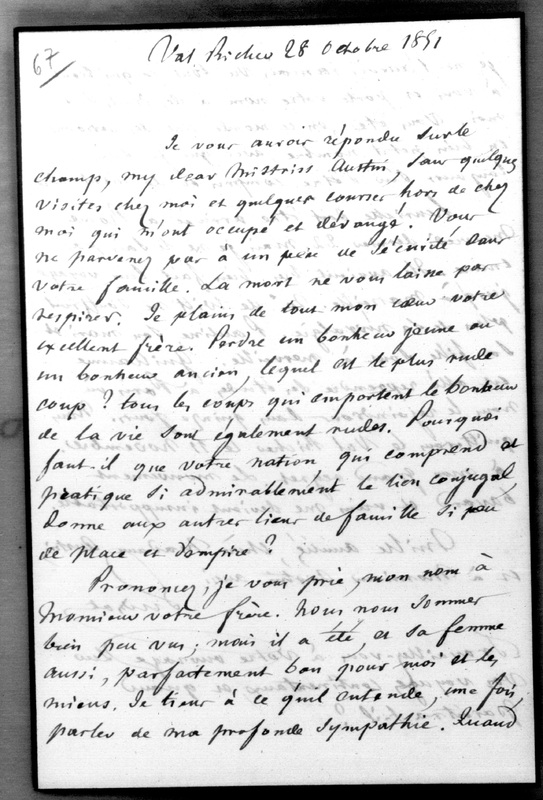 67
Val Richer 28 octobre 1851
Je vous aurois répondu sur le
champ, my dear Mistriss Austin, sans quelques
visites chez moi et quelques courses hors de chez
moi qui m'ont occupé et dérangé. Vous
ne parvenez pas à un peu de sécurité dans
votre famille. La mort ne vous laisse pas
respirer. Je plains de tout mon cœur votre
excellent frère. Perdre un bonheur jeune ou
un bonheur ancien, lequel est le plus rude
coup ? tous les coups qui emportent le bonheur
de la vie sont également rudes. Pourquoi
faut-il que votre nation qui comprend et
pratique si admirablement le lien conjugal,
donne aux autres liens de famille si peu
de place et d'empire ?
Prononcez, je vous prie, mon nom à
Monsieur votre frère. Nous nous sommes
bien peu vus ; mais il a été et sa femme
aussi, parfaitement bon pour moi et les
miens. Je tiens à ce qu'il entende, une fois,
parler de ma profonde sympathie. Quand